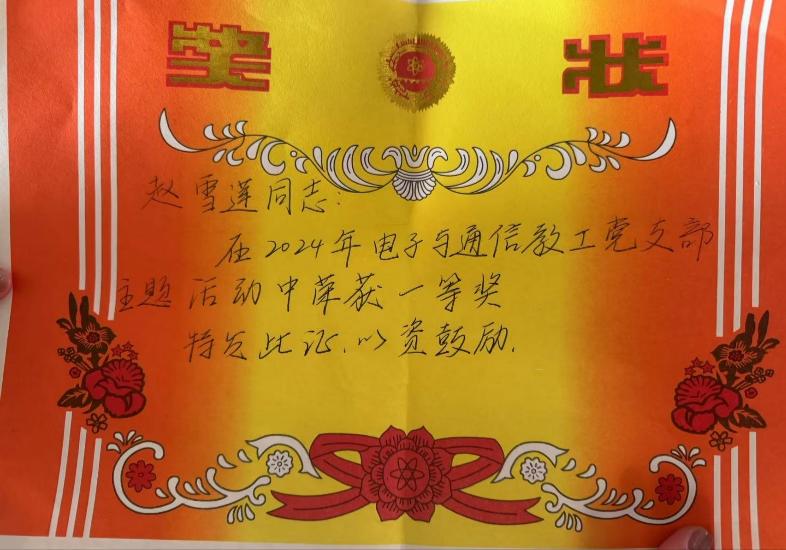 奖状
赵雪莲同志:
在2024年电子与通信教工党支部
主题活动中荣获一等奖
特发此证,以资鼓励.